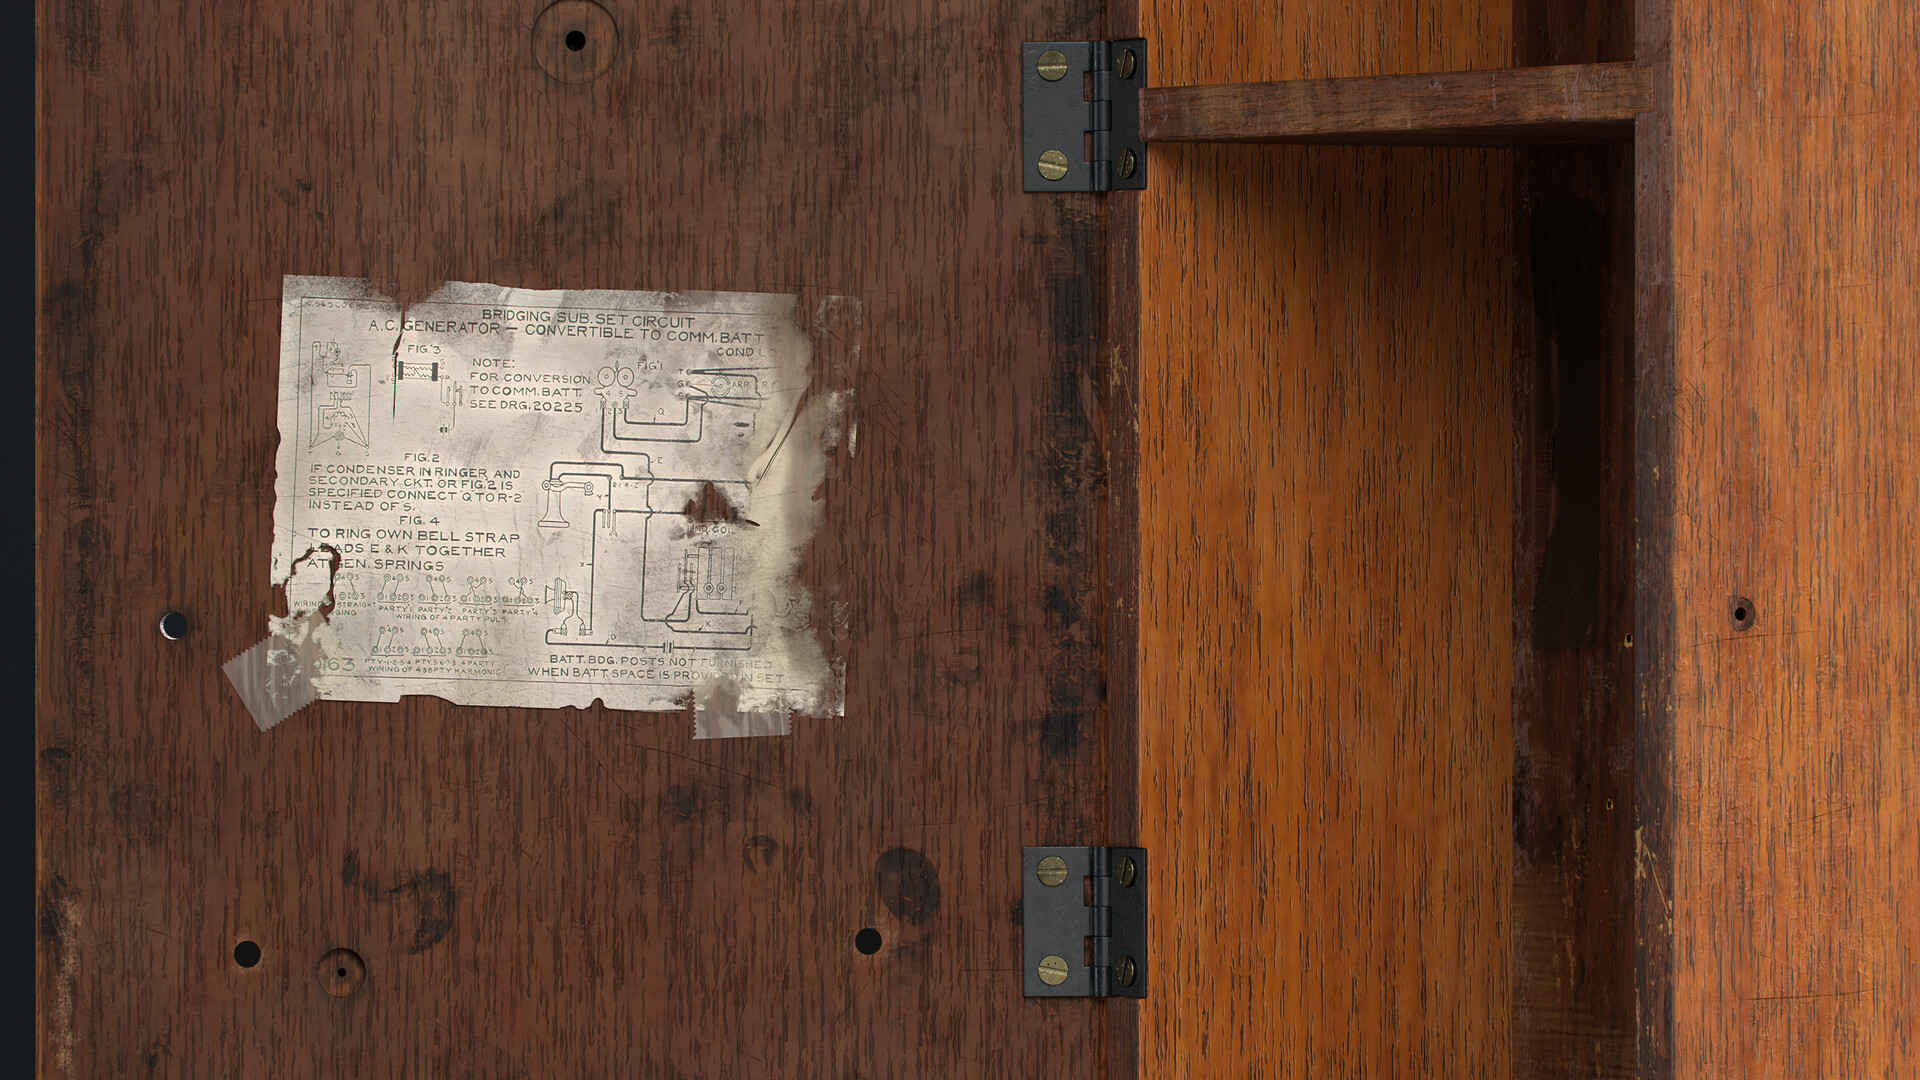 BRIDGING SUB. SET CIRCUIT
A.C. GENERATOR — CONVERTIBLE TO COMM. BATT
COND
FIG. 3
NOTE:
FOR CONVERSION
TO COMM. BATT.
SEE DRG. 20225
FIG. 1
ARR
4 5
Q
E
FIG. 2
IF CONDENSER IN RINGER AND
SECONDARY CKT. OR FIG. 2 IS
SPECIFIED CONNECT Q TO R-2
INSTEAD OF S.
R-1 R-2
Y
FIG. 4
TO RING OWN BELL STRAP
LEADS E & K TOGETHER
AT GEN. SPRINGS
IND. COIL
X
WIRING STRAIGHT
PARTY 1 PARTY 2 PARTY 3 PARTY 4
WIRING OF 4 PARTY PULS.
K
D
163
PTY-1-2-3-4 PTY.5-6-7-8 4 PARTY
WIRING OF 4&8 PTY HARMONIC
BATT. BDG. POSTS NOT FURNISHED
WHEN BATT. SPACE IS PROVIDED IN SET